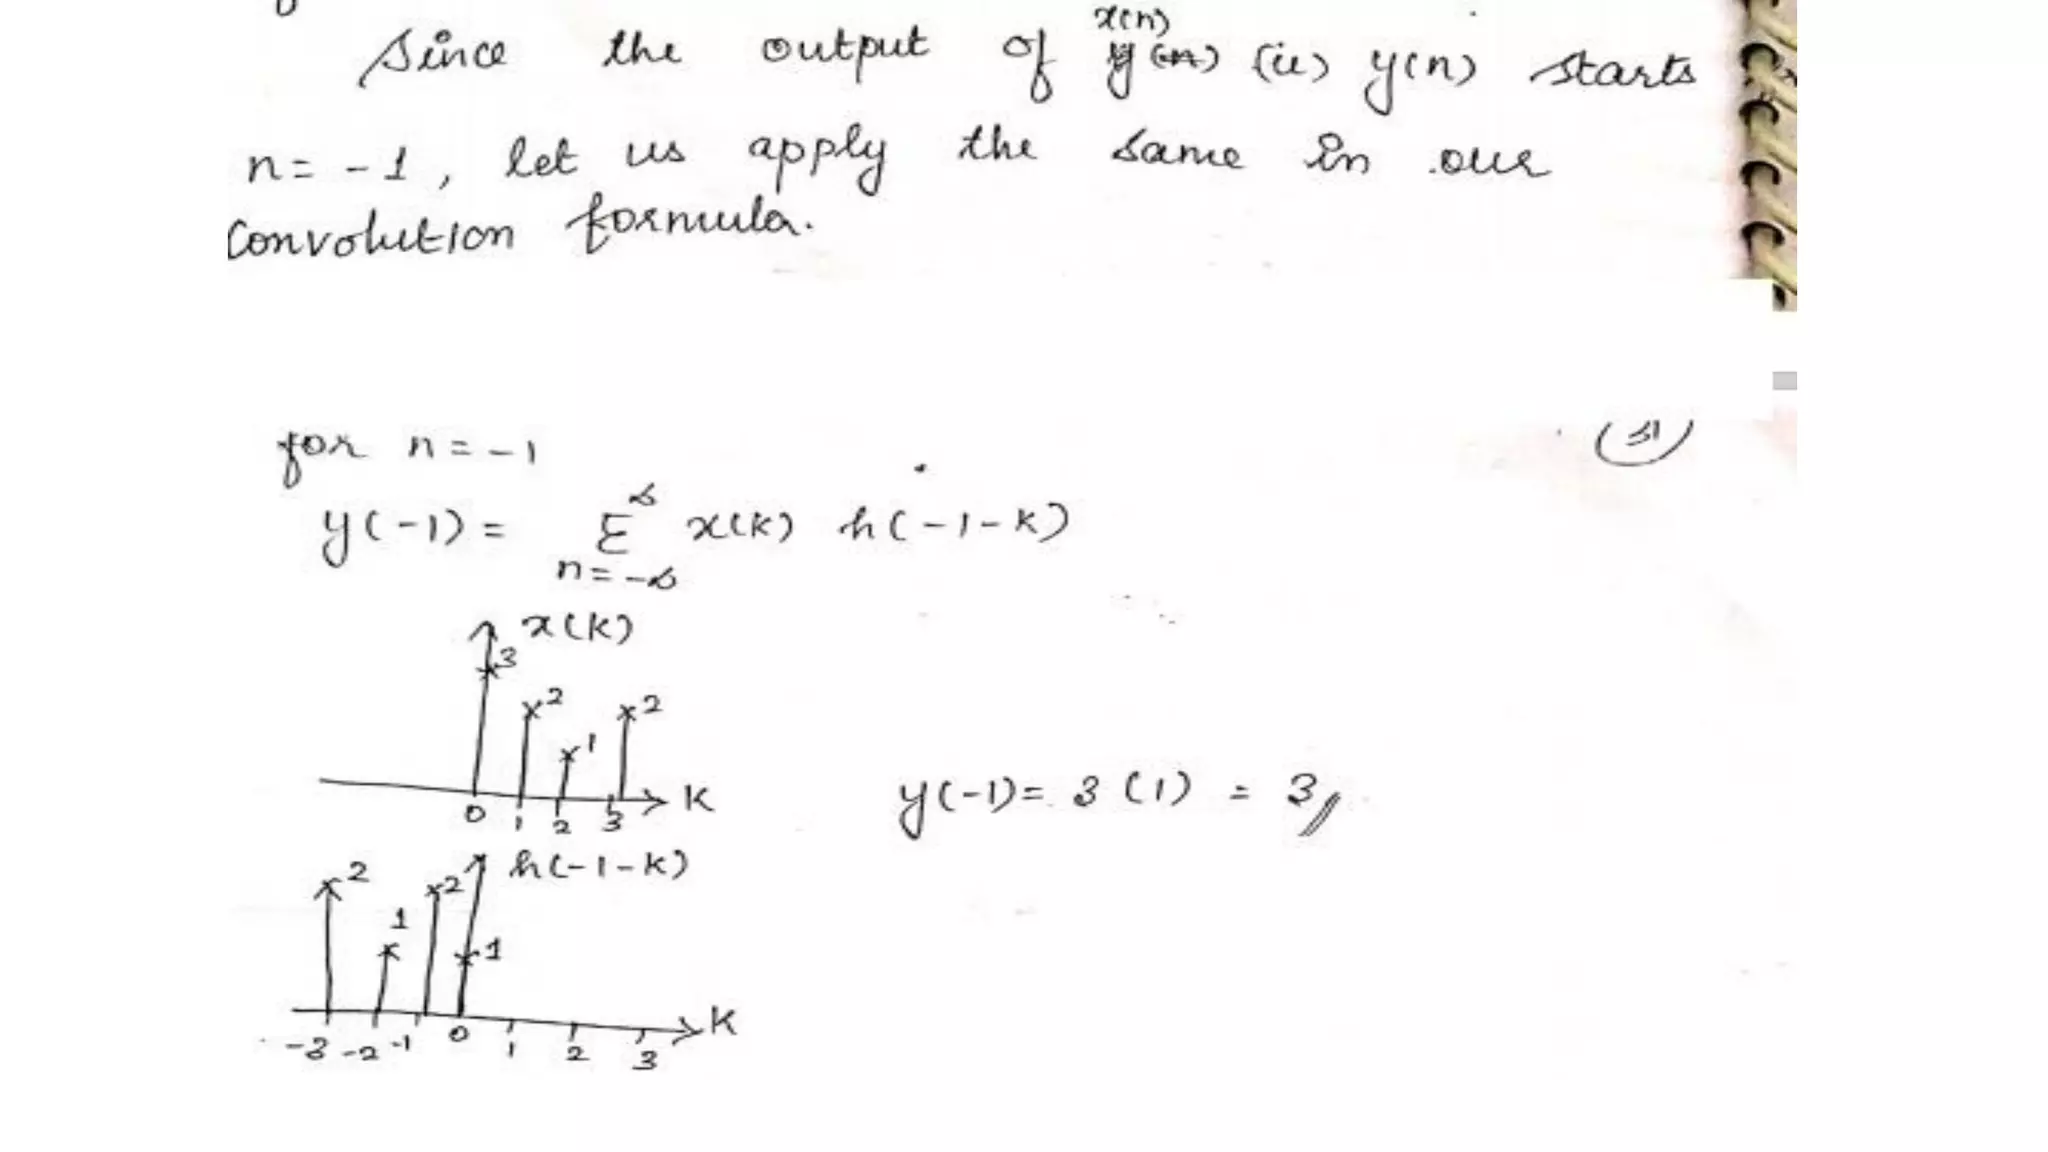 Since the output of x(n) (ie) y(n) starts
n = -1, let us apply the same in our
convolution formula.
31
for n = -1
y(-1) = Σ^∞_{n=-∞} x(k) h(-1-k)
x(k)
3
2
1
2
0 1 2 3 K
y(-1) = 3 (1) = 3
h(-1-k)
2
1
2
1
-3 -2 -1 0 1 2 3 K